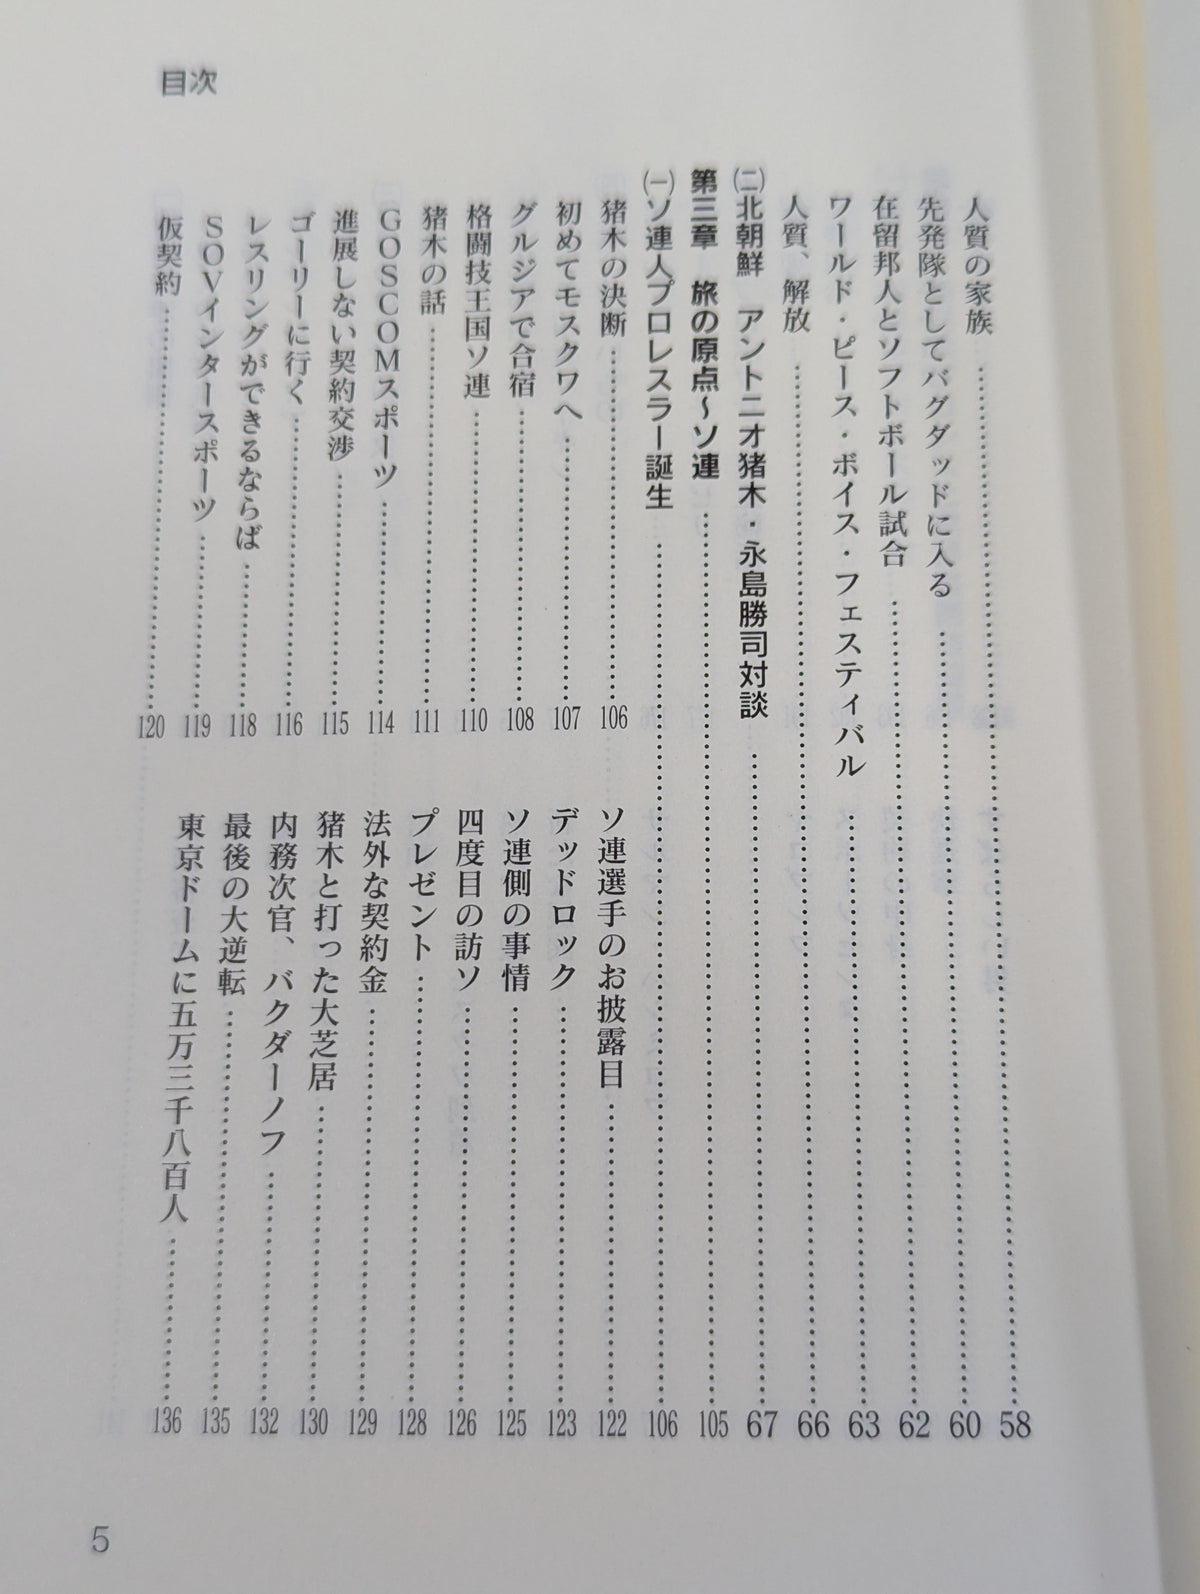 目次
人質の家族……58
先発隊としてバグダッドに入る……60
在留邦人とソフトボール試合……62
ワールド・ピース・ボイス・フェスティバル……63
人質、解放……66
㈡北朝鮮　アントニオ猪木・永島勝司対談……67
第三章　旅の原点〜ソ連……105
㈠ソ連人プロレスラー誕生……106
猪木の決断……106
初めてモスクワへ……107
グルジアで合宿……108
格闘技王国ソ連……110
猪木の話……111
GOSCOMスポーツ……114
進展しない契約交渉……115
ゴーリーに行く……116
レスリングができるならば……118
SOVインタースポーツ……119
仮契約……120
ソ連選手のお披露目……122
デッドロック……123
ソ連側の事情……125
四度目の訪ソ……126
プレゼント……128
法外な契約金……129
猪木と打った大芝居……130
内務次官、バクダーノフ……132
最後の大逆転……135
東京ドームに五万三千八百人……136
5